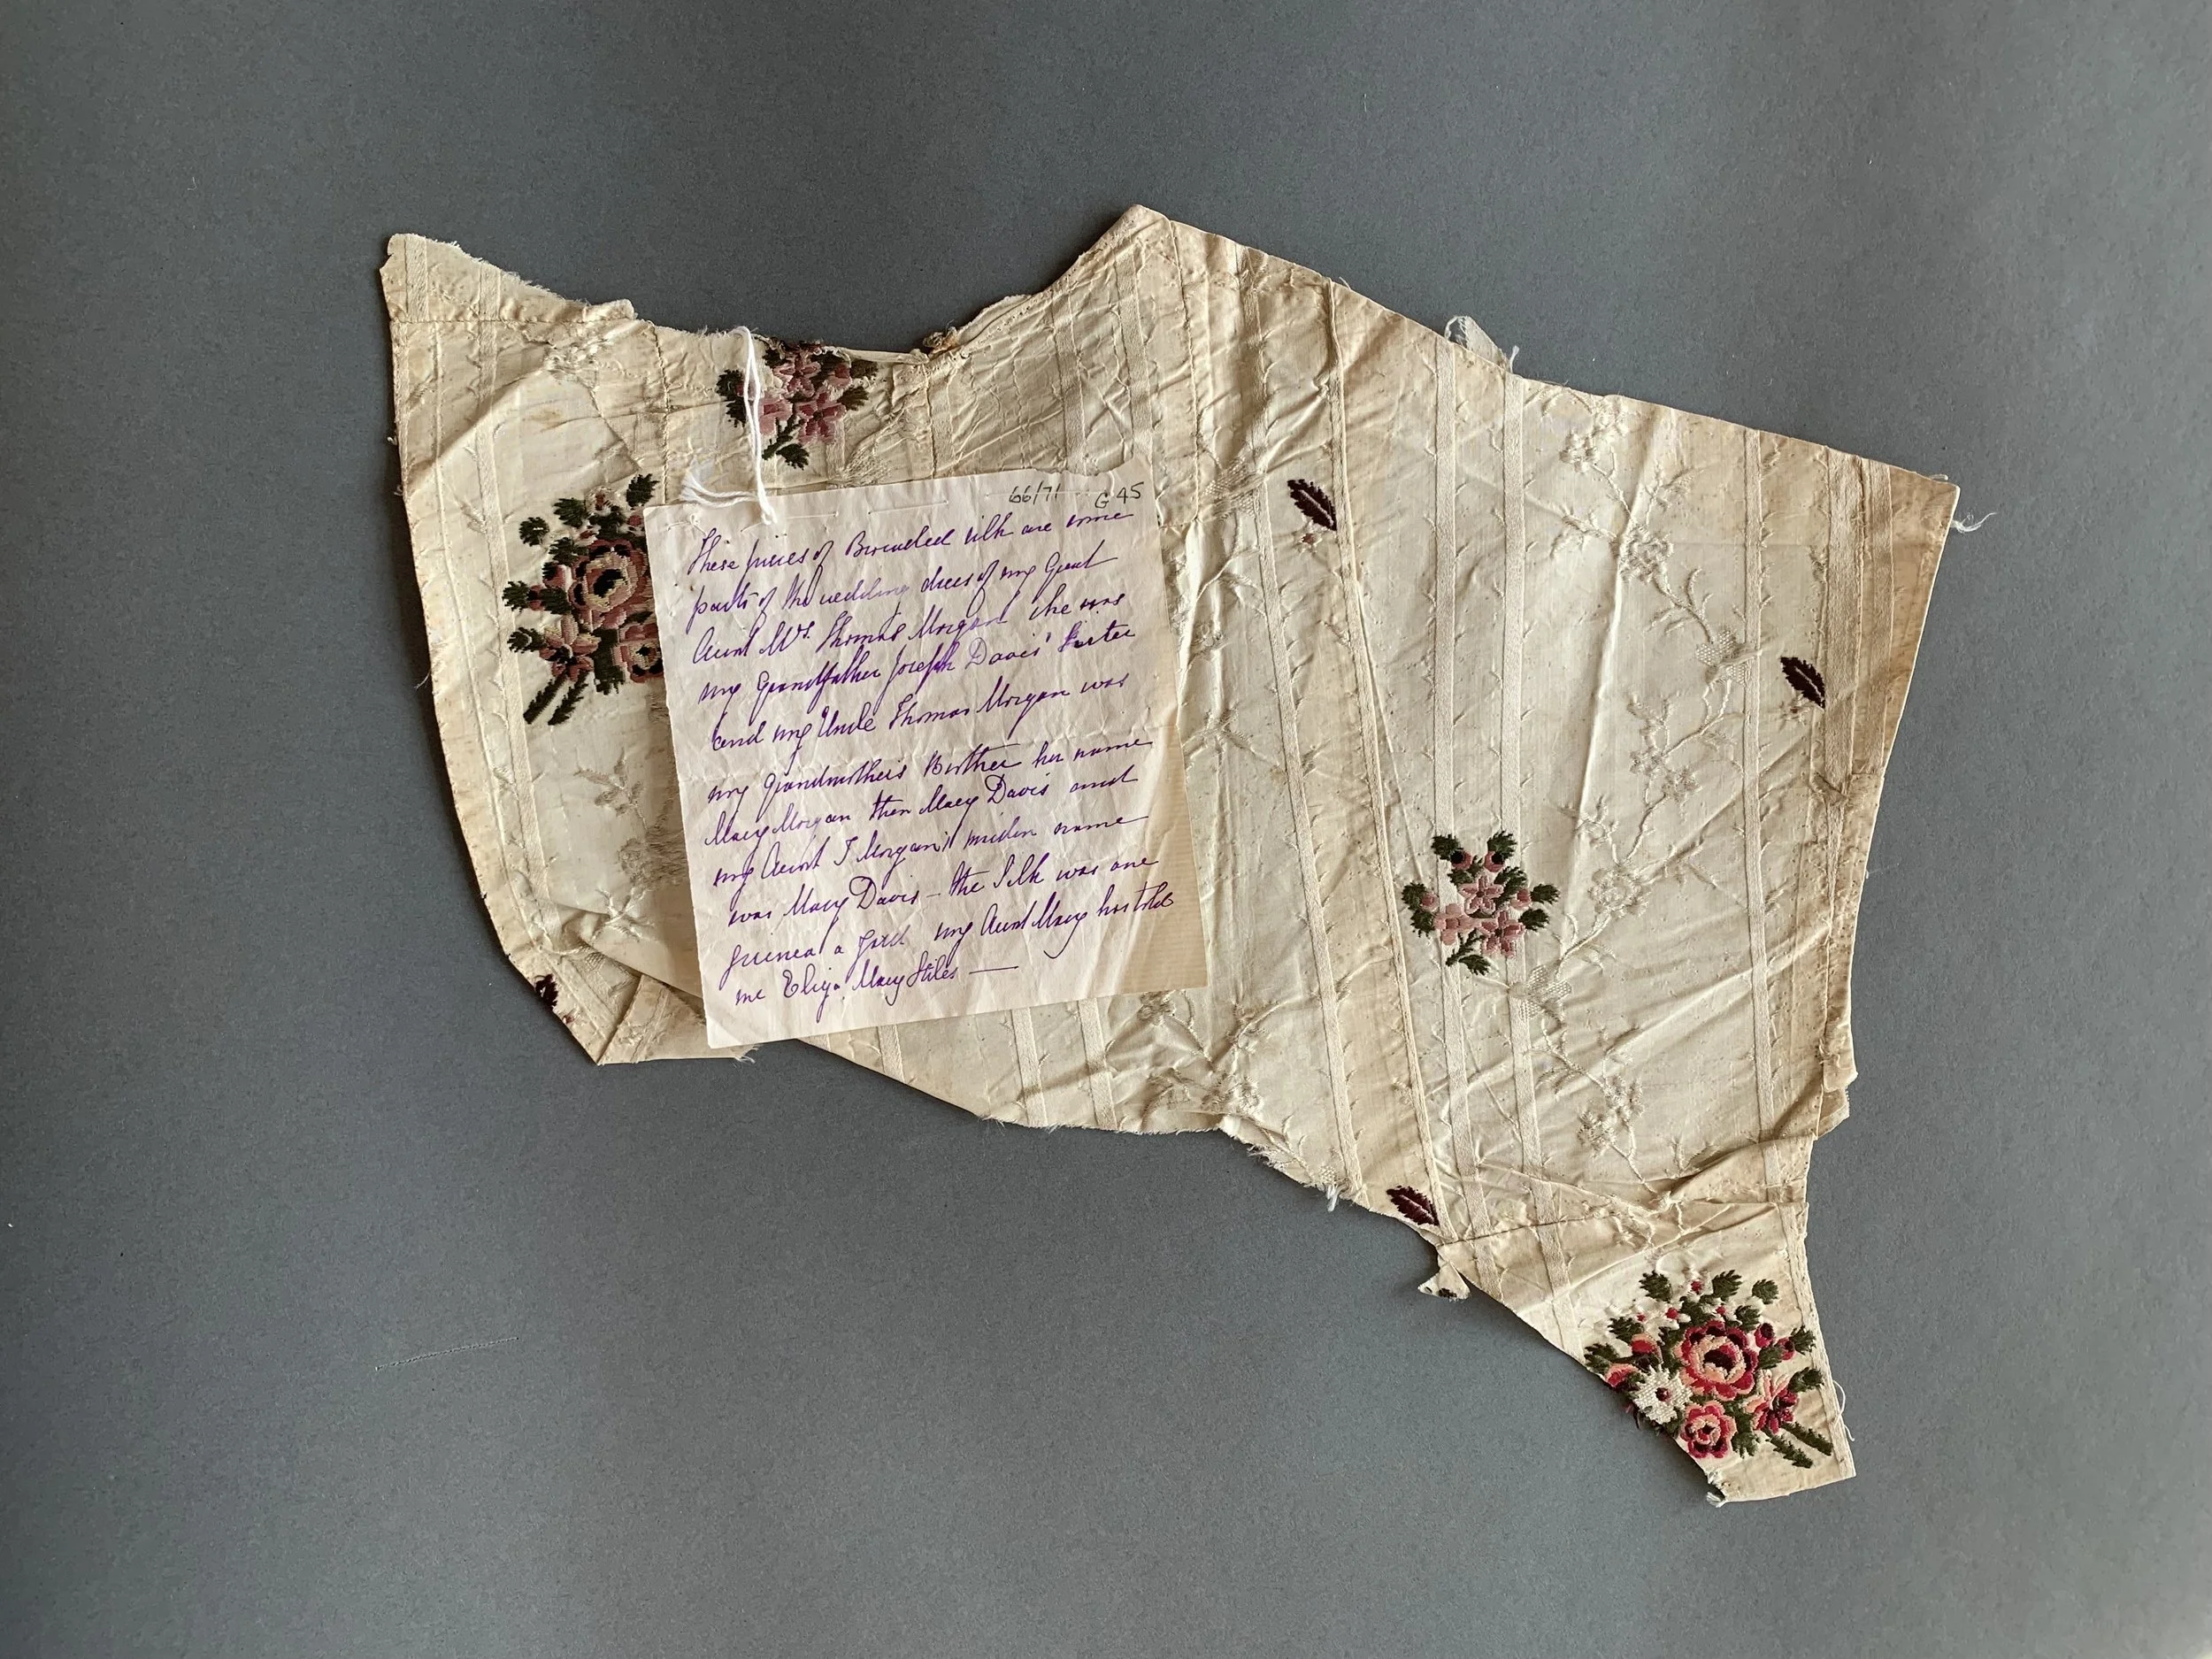 66/71 G 45
These pieces of Brocaded silk are some
parts of the wedding dress of my Great
Aunt Mrs. Thomas Morgan she was
my Grandfather Joseph Davis' Sister
and my Uncle Thomas Morgan was
my Grandmother's Brother her name
Mary Morgan then Mary Davis and
my Aunt T Morgan's maiden name
was Mary Davis - the Silk was one
guinea a yard my Aunt Mary has told
me Eliza Mary Stiles —